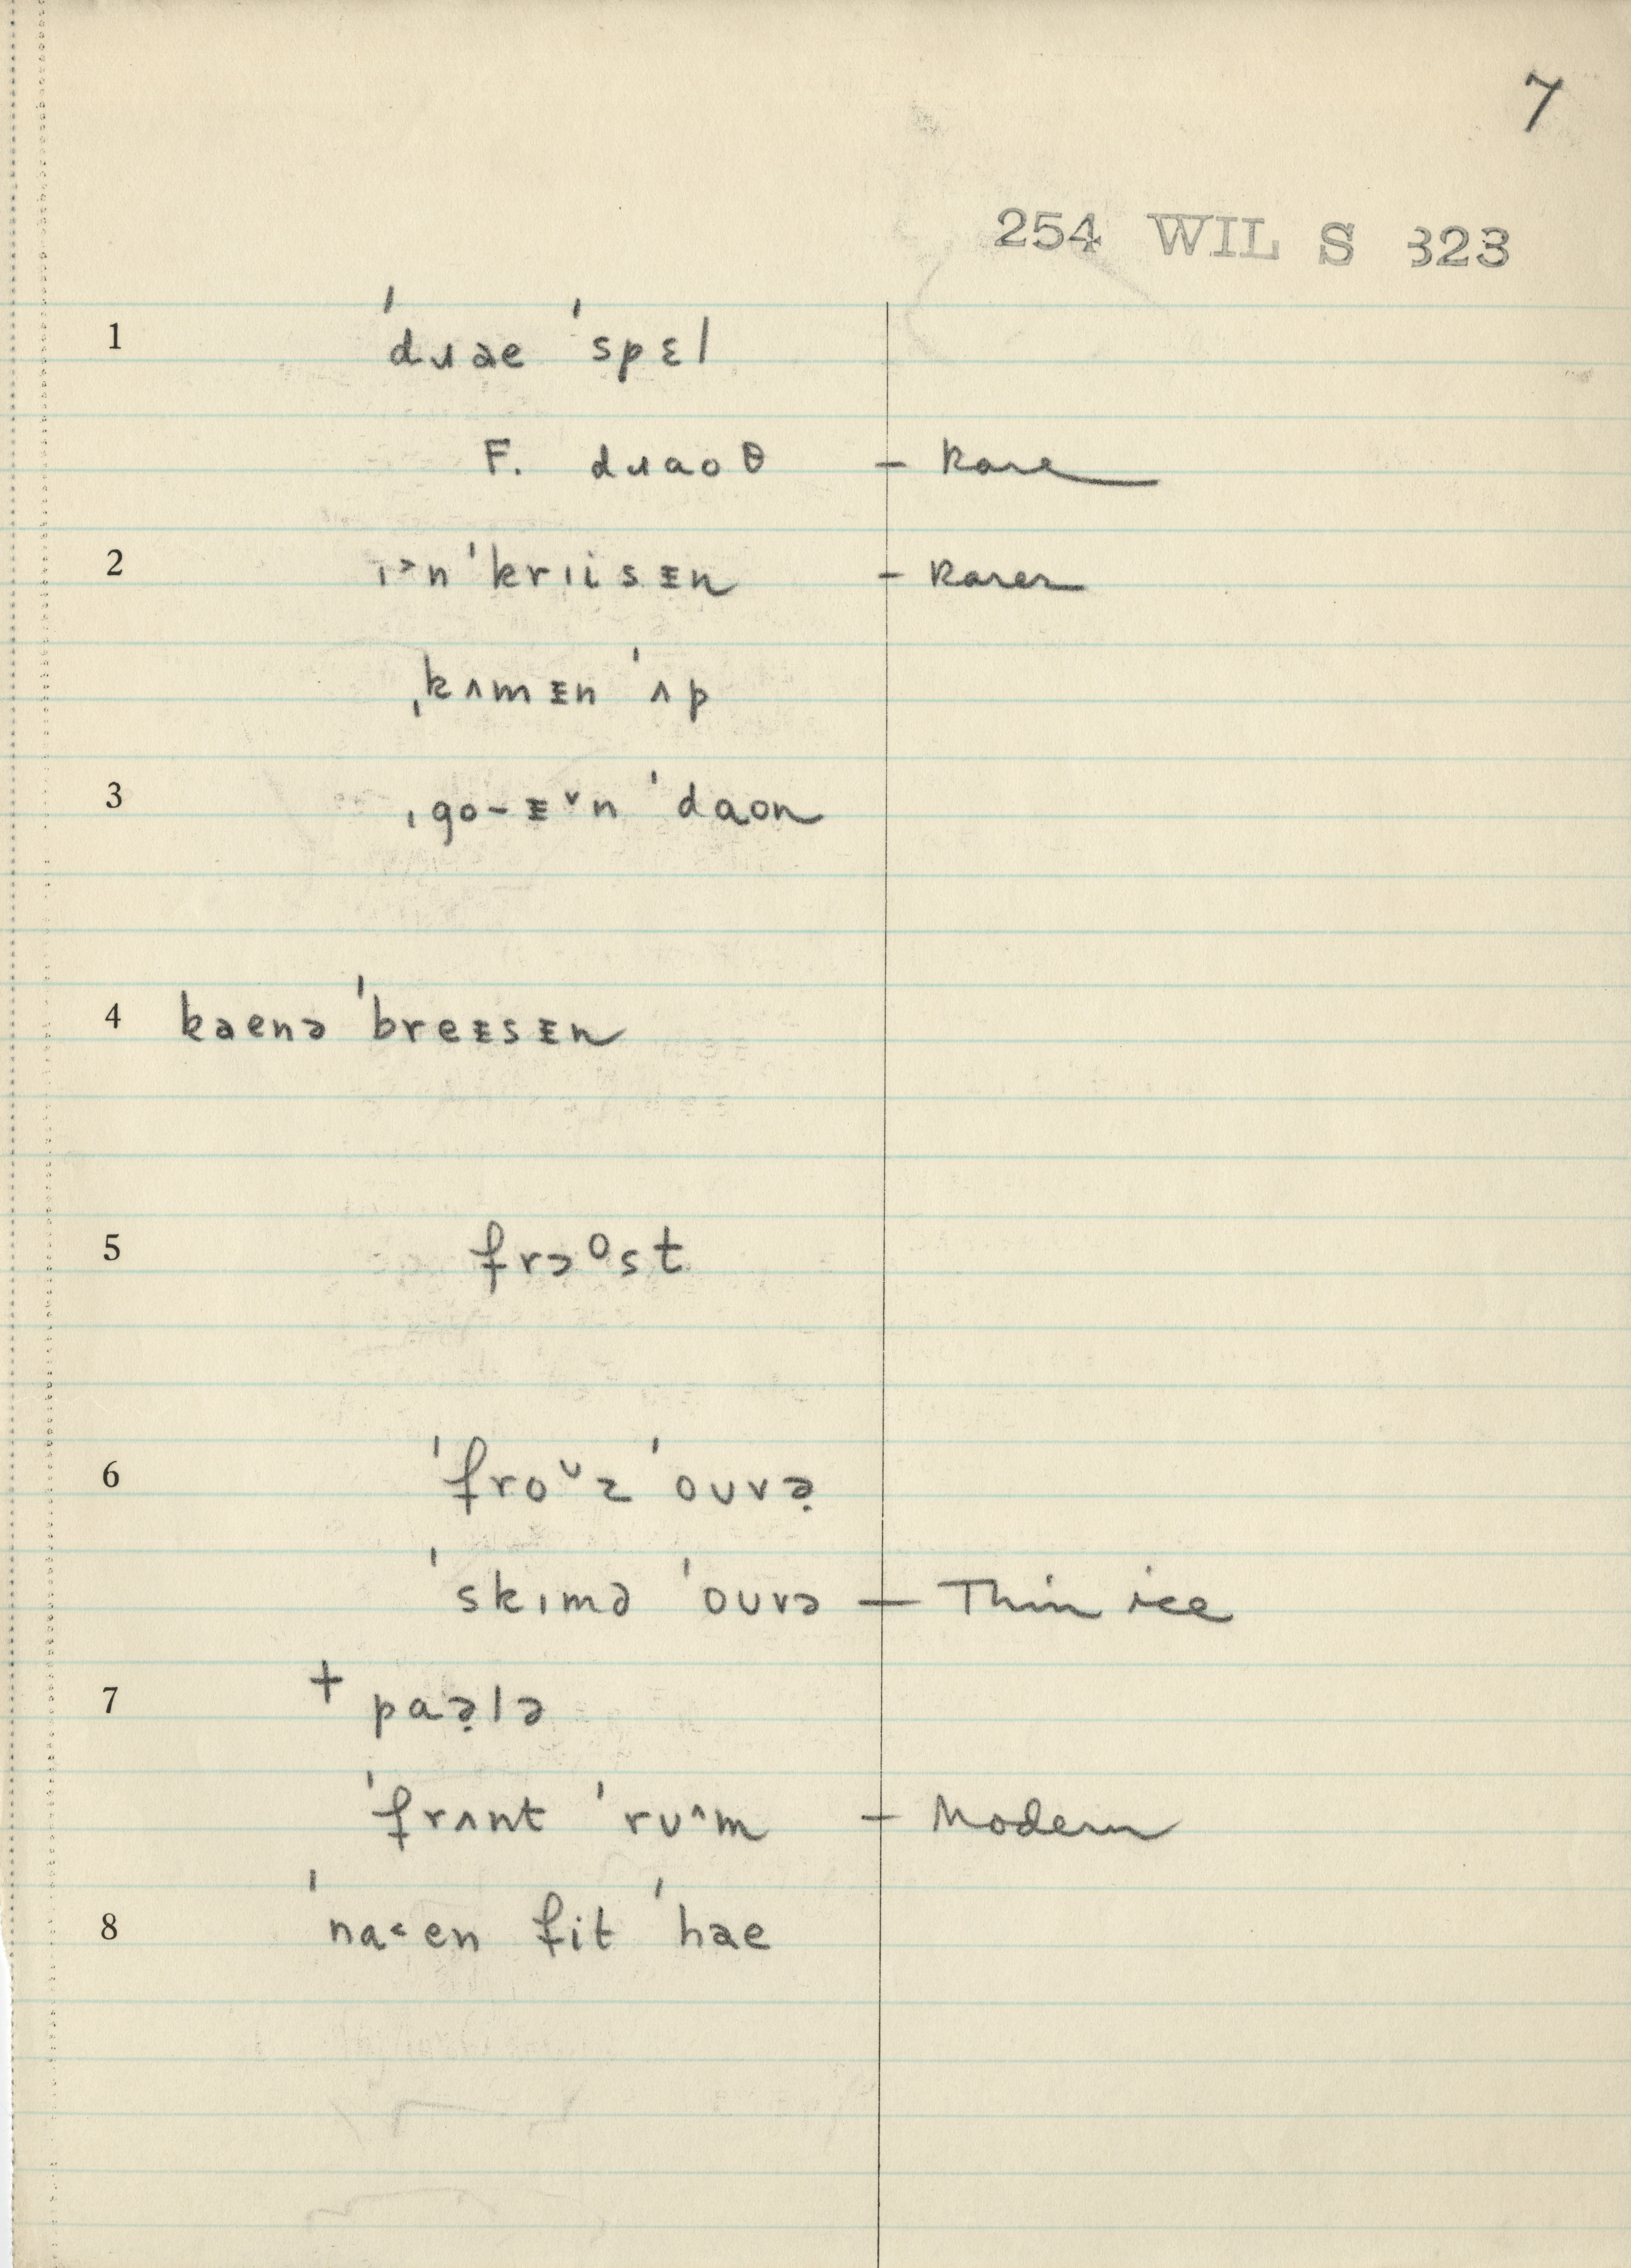 7
254 WIL S 323
1 ˈdɹae ˈspɛl
F. dɹaoθ – Rare
2 ɪ˃nˈkrɪisᴇn – Rarer
ˌkʌmᴇn ˈʌp
3 ˌgo-ᴇ˅n ˈdaon
4 kaenə ˈbreᴇsᴇn
5 frɔᴼst
6 ˈfroᶷz ˈoʊvə̣
ˈskɪmd ˈoʊvə – Thin ice
7 + paə̣lə
ˈfrʌnt ˈrʊ^m – Modern
8 ˈna˂en fit ˈhae